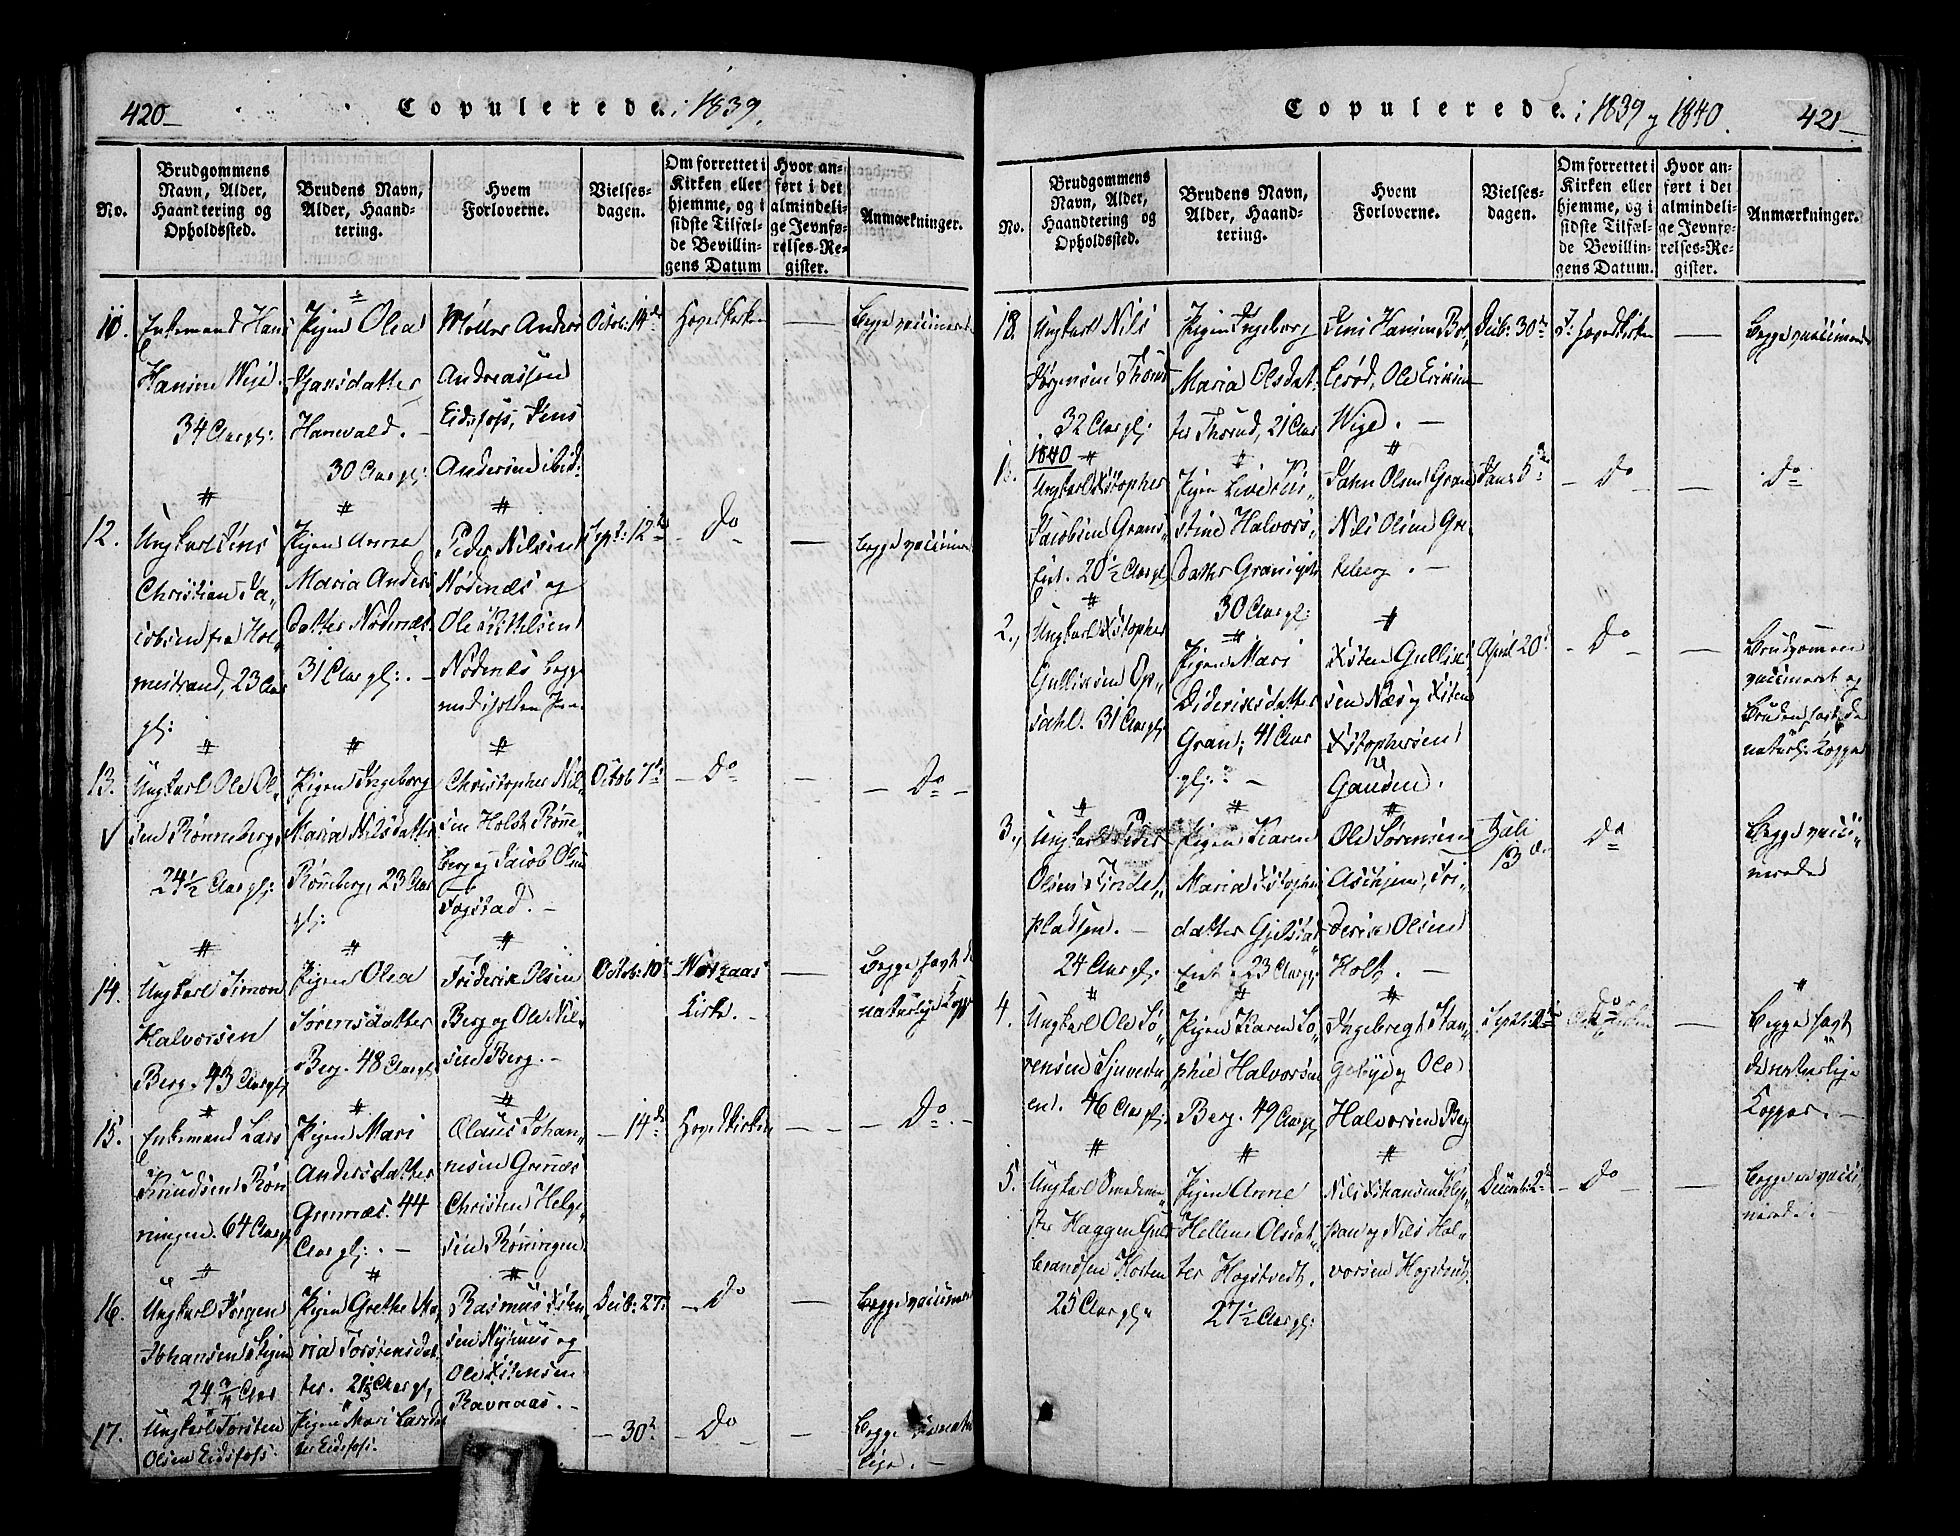 420
Copulerede i 1839.
No.
Brudgommens
Navn, Alder,
Haandtering og
Opholdssted.
Brudens Navn,
Alder, Haand-
tering.
Hvem
Forloverne.
Vielses-
dagen.
Om forrettet i
Kirken eller
hjemme, og i
sidste Tilfæl-
de Bevillin-
gens Datum
Hvor an-
ført i det
almindeli-
ge Jevnfø-
relses-Re-
gister.
Anmærkninger.
Enkemand Hans
34 Aar gl:
Pigen Olea
30 Aar gl:
Møller Anders
Andreassen
Eidsfoss, Jens
Andersen ibid:
Octob: 14de
Begge vaccinerede
12.
Ungkarl Jens
Christian Ja-
cobsen fra Hol-
mestrand, 23 Aar
gl:
Pigen Anne
Maria Anders
datter Nødenæs
31 Aar gl:
Peder Nilsen
Nødenæs og
Ole Kittelsen
Nødenæs begge
Sept: 12te
Do
Begge vaccinerede
13.
Ungkarl Ole Ol-
sen Rønneberg
24½ Aar gl:
Pigen Ingeborg
Maria Nilsdatter
Rønneberg, 23 Aar
gl:
Christopher Nil-
sen Holst Rønne-
berg og Jacob Olsen
Fogstad.
Octob 7de
Do
Do
14.
Ungkarl Simon
Halvorsen
Berg. 43 Aar gl:
Pigen Olea
Sørensdatter
Berg. 48 Aar gl:
Friderik Olsen
Berg og Ole Nil-
sen Berg.
Octob: 10de
Kirke.
Begge havt de
naturlige Kopper
15.
Enkemand Lars
Knudsen Røn
ningen. 64 Aar gl
Pigen Mari
Andersdatter
Grennæs. 44
Aar gl:
Olaus Johan-
nesen Grennæs
Christen Helge-
sen Rønningen
14de
Do
16.
Ungkarl Jørgen
Johansen
24 ¾ Aar
Pigen Grethe Ma-
ria Torstensdat
ter.
Rasmus Xsten-
sen Nyhuus og
Ole Xstensen
Ravnaas.
Decb: 27
Do
Begge vaccinerede
17.
Ungkarl Torsten
Olsen Eidsfoss.
Pigen Mari Larsdat
ter Eidsfoss.
30te
Do
Begge
Copulerede i 1839 og 1840.
421
No.
Brudgommens
Navn, Alder,
Haandtering og
Opholdssted.
Brudens Navn,
Alder, Haand-
tering.
Hvem
Forloverne.
Vielses-
dagen.
Om forrettet i
Kirken eller
hjemme, og i
sidste Tilfæl-
de Bevillin-
gens Datum.
Hvor an-
ført i det
almindeli-
ge Jevnfø-
relses-Re-
gister.
Anmærkninger.
18.
Ungkarl Nils
Jørgensen
32 Aar gl:
Pigen Ingeborg
Maria Olsdat
ter Thorud, 21 Aar
Jens Hansen
Ole Eriksen
Decb: 30te
Begge vaccinerede
1840
1.
Ungkarl Xstopher
Jacobsen
20½ Aar gl
Pigen
stine Halvors-
datter
30 Aar gl:
John Olsen Gran
Nils Olsen Gre
teberg.
Do
Do
2.
Ungkarl Xstopher
Gulliksen Op-
sahl. 31 Aar gl:
Pigen Mari
Dideriksdatter
Gran, 41 Aar
gl:
Xsten Gullik-
sen Næs og Xsten
Xstophersen
Gausen.
April 20
Do
Brudgommen
vaccineret og
Bruden havt de
naturl. Kopper
3.
Ungkarl Peder
Olsen
pladsen.
24 Aar gl:
Pigen Karen
Maria Xstopher
datter
23 Aar gl:
Ole Sørensen
Askjem, Fri-
derik Olsen
Holt.
Juli
13de
Do
Begge vacci-
nerede
4.
Ungkarl Ole Sø-
rensen
en. 46 Aar gl:
Pigen Karen So-
phie Halvorsen
Berg. 49 Aar gl
Ingebregt Stan-
gebye og Ole
Halvorsen Berg
Do
Begge havt
de naturlige
Kopper.
5.
Ungkarl
Haagen Gul
brandsen
25 Aar gl:
Pigen Anne
Hellene Olsdat-
ter Hogstvedt.
27½ Aar gl:
Nils
og Nils Hal-
vorsen Hogstvedt.
Decemb: 2de
Do
Begge vacci-
nerede.